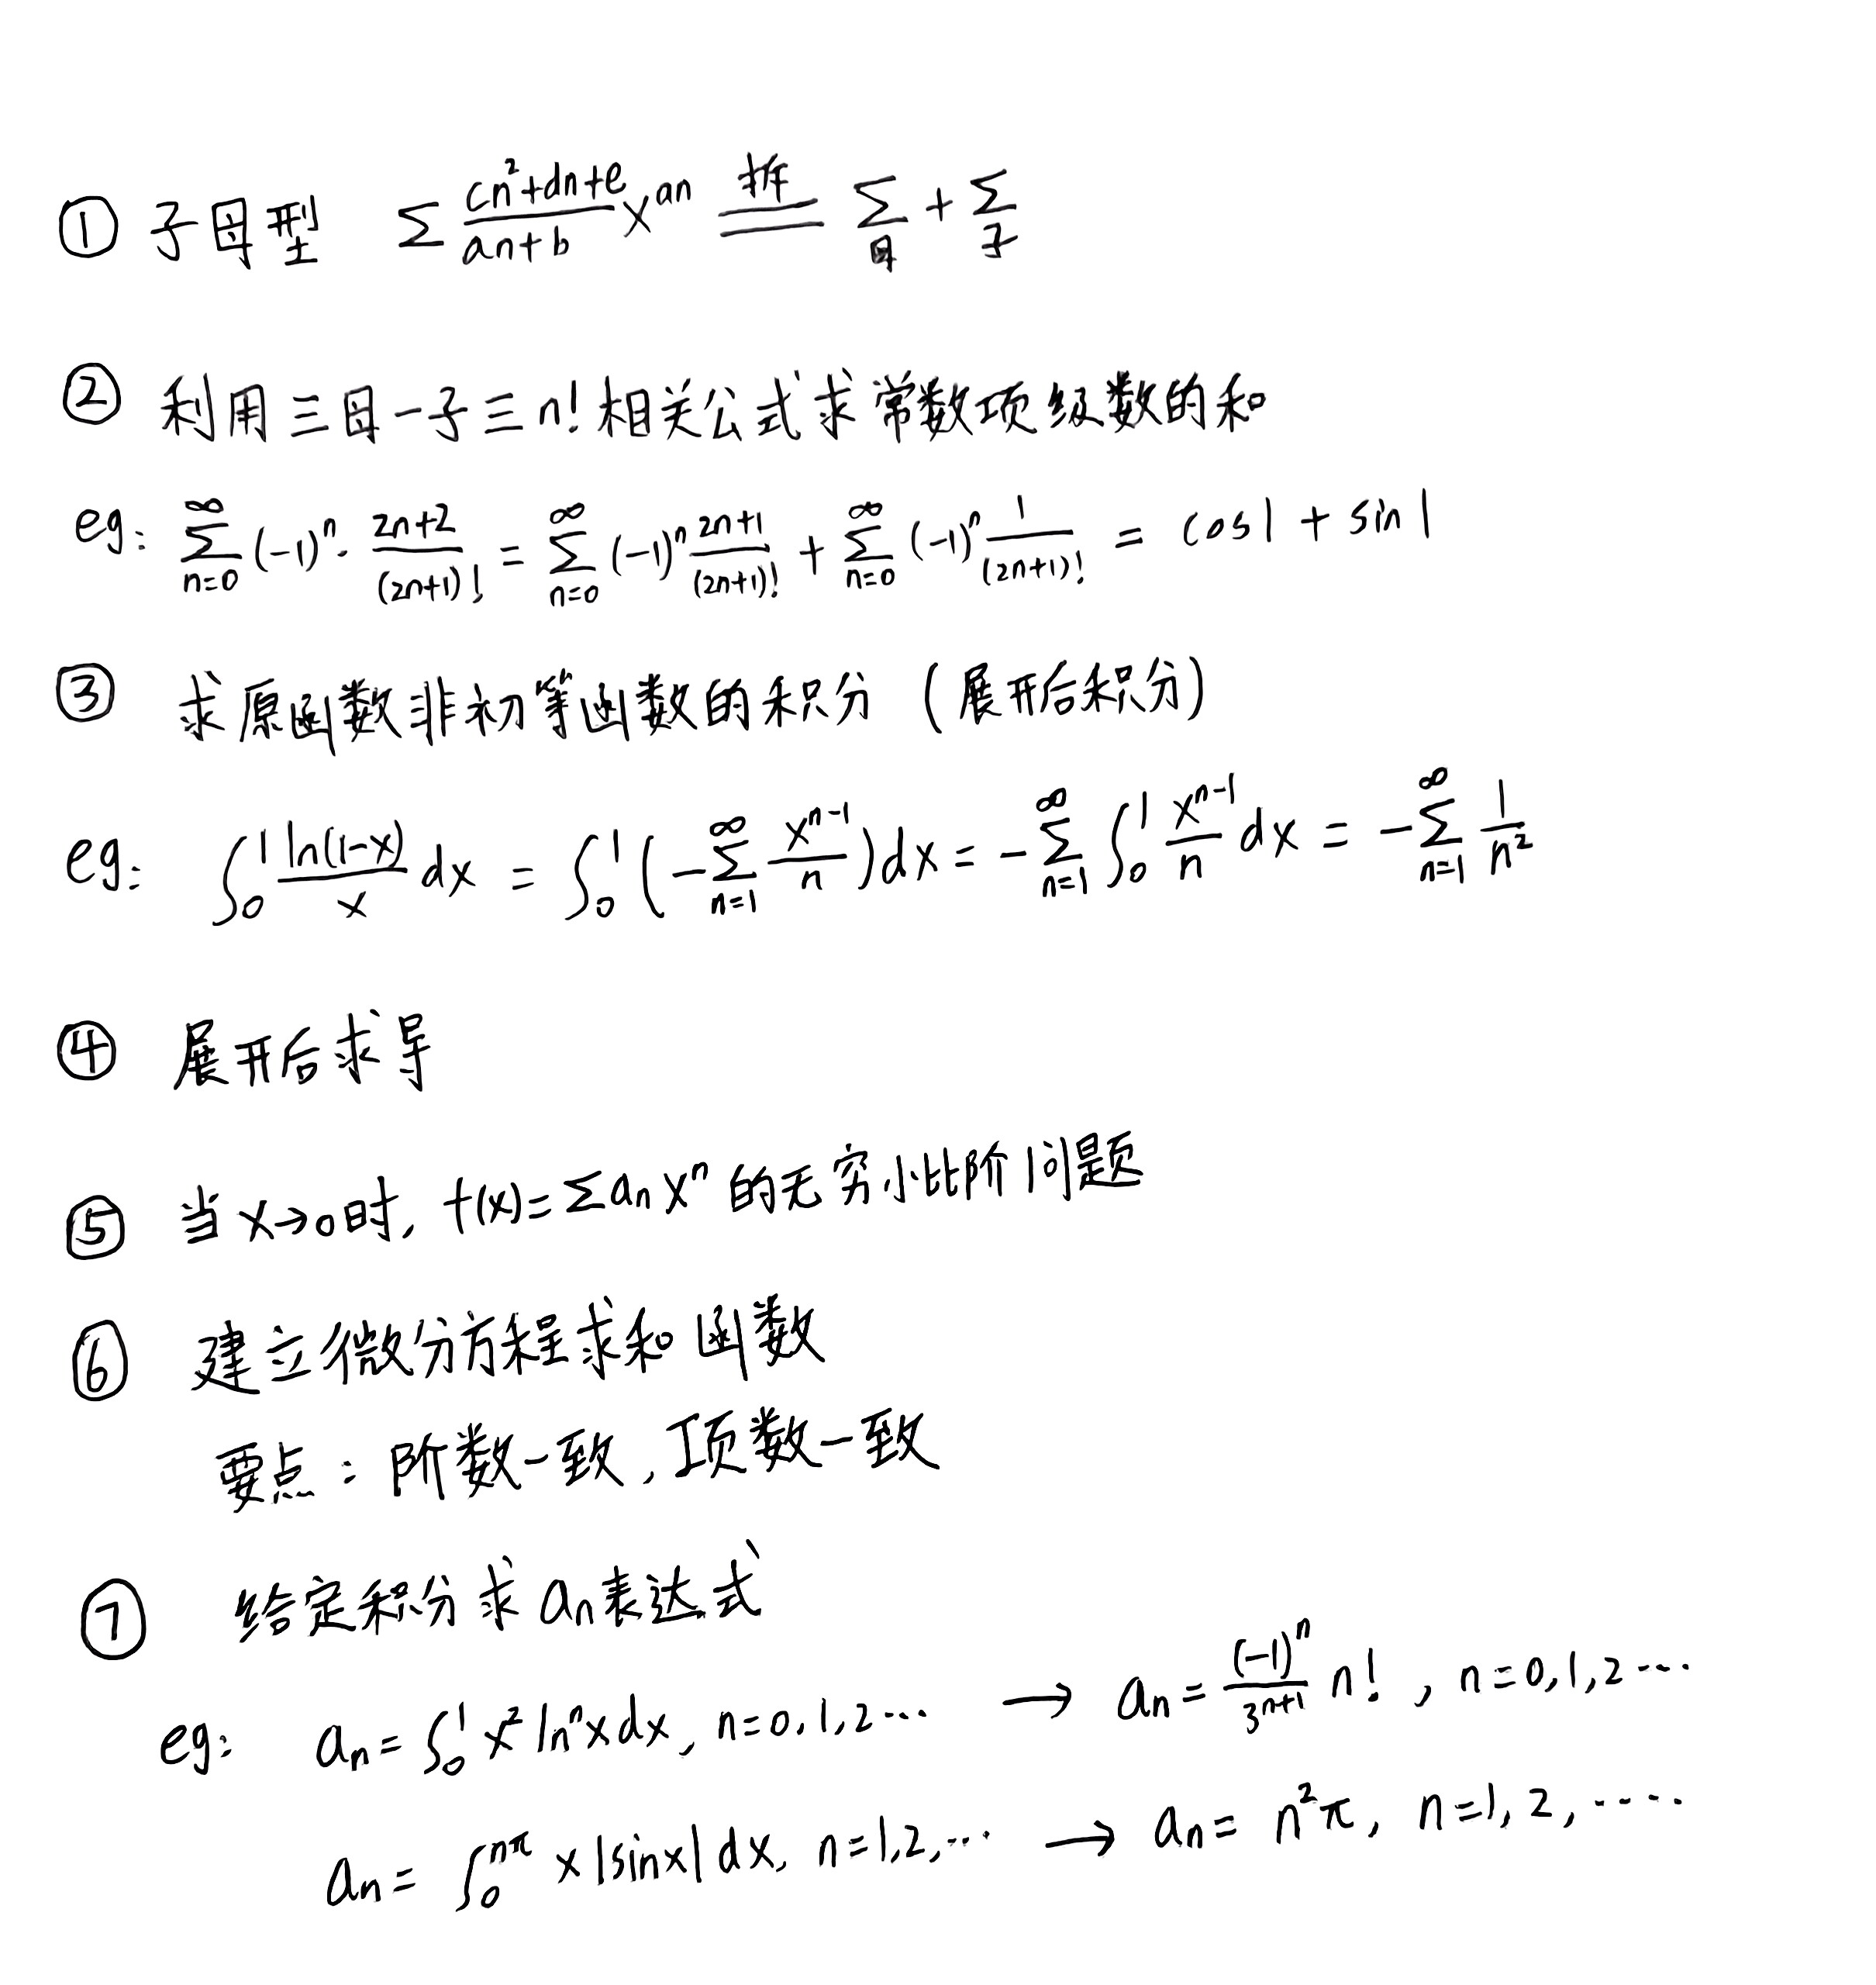 ① 子母型 ∑ (cn²+dn+e)/(an+b) x^{an} 拆== ∑/母 + ∑/子
② 利用三母一子三n!相关公式求常数项级数的和
eg: ∑_{n=0}^{∞} (-1)^n · (2n+2)/(2n+1)! = ∑_{n=0}^{∞} (-1)^n (2n+1)/(2n+1)! + ∑_{n=0}^{∞} (-1)^n 1/(2n+1)! = cos1 + sin1
③ 求原函数非初等函数的积分 (展开后积分)
eg: ∫_0^1 ln(1-x)/x dx = ∫_0^1 (-∑_{n=1}^{∞} x^{n-1}/n)dx = -∑_{n=1}^{∞} ∫_0^1 x^{n-1}/n dx = -∑_{n=1}^{∞} 1/n²
④ 展开后求导
⑤ 当x→0时, f(x)=∑a_n x^n 的无穷小比阶问题
⑥ 建立微分方程求和函数
要点: 阶数一致, 项数一致
⑦ 给定积分求a_n表达式
eg: a_n = ∫_0^1 x² ln^n x dx, n=0,1,2… → a_n = (-1)^n/3^{n+1} n!, n=0,1,2…
a_n = ∫_0^{nπ} x|sinx|dx, n=1,2,… → a_n = n²π, n=1,2,……